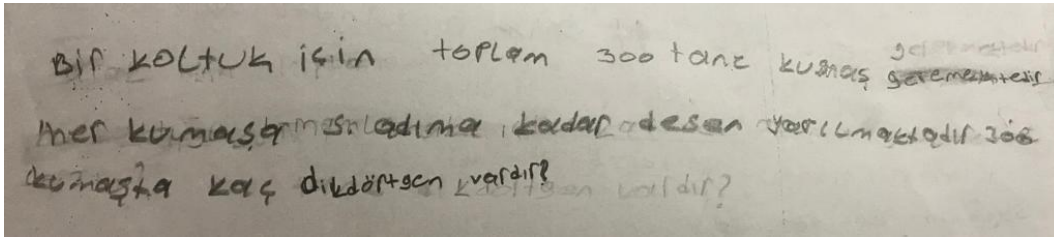 Bir koltuk için toplam 300 tane kumaş gerekmektedir
Her kumaşa kadar desen yapılmaktadır 300
kumaşta kaç dikdörtgen vardır?